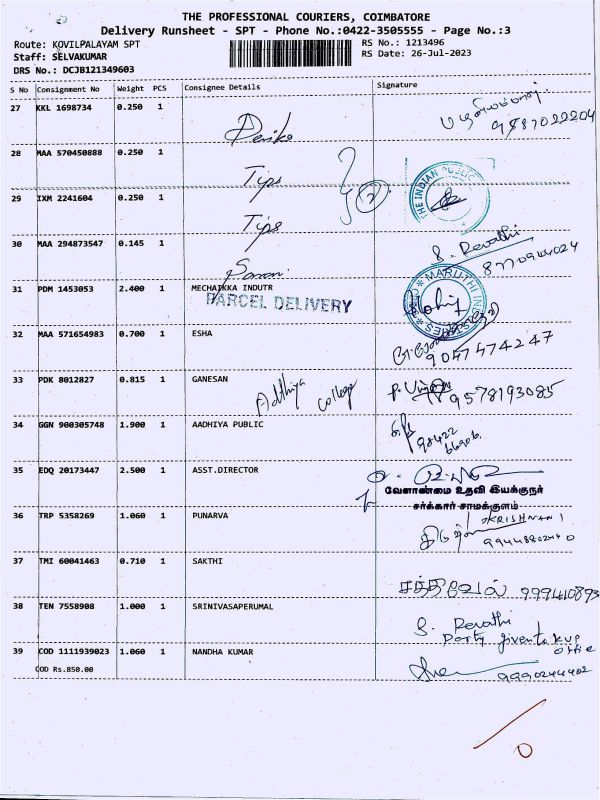 THE PROFESSIONAL COURIERS, COIMBATORE
Delivery Runsheet - SPT - Phone No.:0422-3505555 - Page No.:3
Route: KOVILPALAYAM SPT RS No.: 1213496
Staff: SELVAKUMAR RS Date: 26-Jul-2023
DRS No.: DCJB121349603
S No Consignment No Weight PCS Consignee Details Signature
27 KKL 1698734 0.250 1
9587022204
28 MAA 570450888 0.250 1
Tips
THE INDIAN PUBLIC
29 IXM 2241604 0.250 1
Tips
2
30 MAA 294873547 0.145 1
S. Revathi
8770944024
31 PDM 1453053 2.400 1 MECHATKKA INDUTR
PARCEL DELIVERY
MARUTHI INDUSTRIES
32 MAA 571654983 0.700 1 ESHA
9047474247
33 PDK 8012827 0.815 1 GANESAN
Adthiya college
9578193085
34 GGN 900305748 1.900 1 AADHIYA PUBLIC
98422
66906
35 EDQ 20173447 2.500 1 ASST.DIRECTOR
வேளாண்மை உதவி இயக்குநர்
சர்க்கார் சாமக்குளம்
36 TRP 5358269 1.060 1 PUNARVA
37 TMI 60041463 0.710 1 SAKTHI
சத்திவேல் 999410893
38 TEN 7558908 1.000 1 SRINIVASAPERUMAL
S. Revathi
Party given to KVP
office
39 COD 1111939023 1.060 1 NANDHA KUMAR
COD Rs.850.00
9990244402